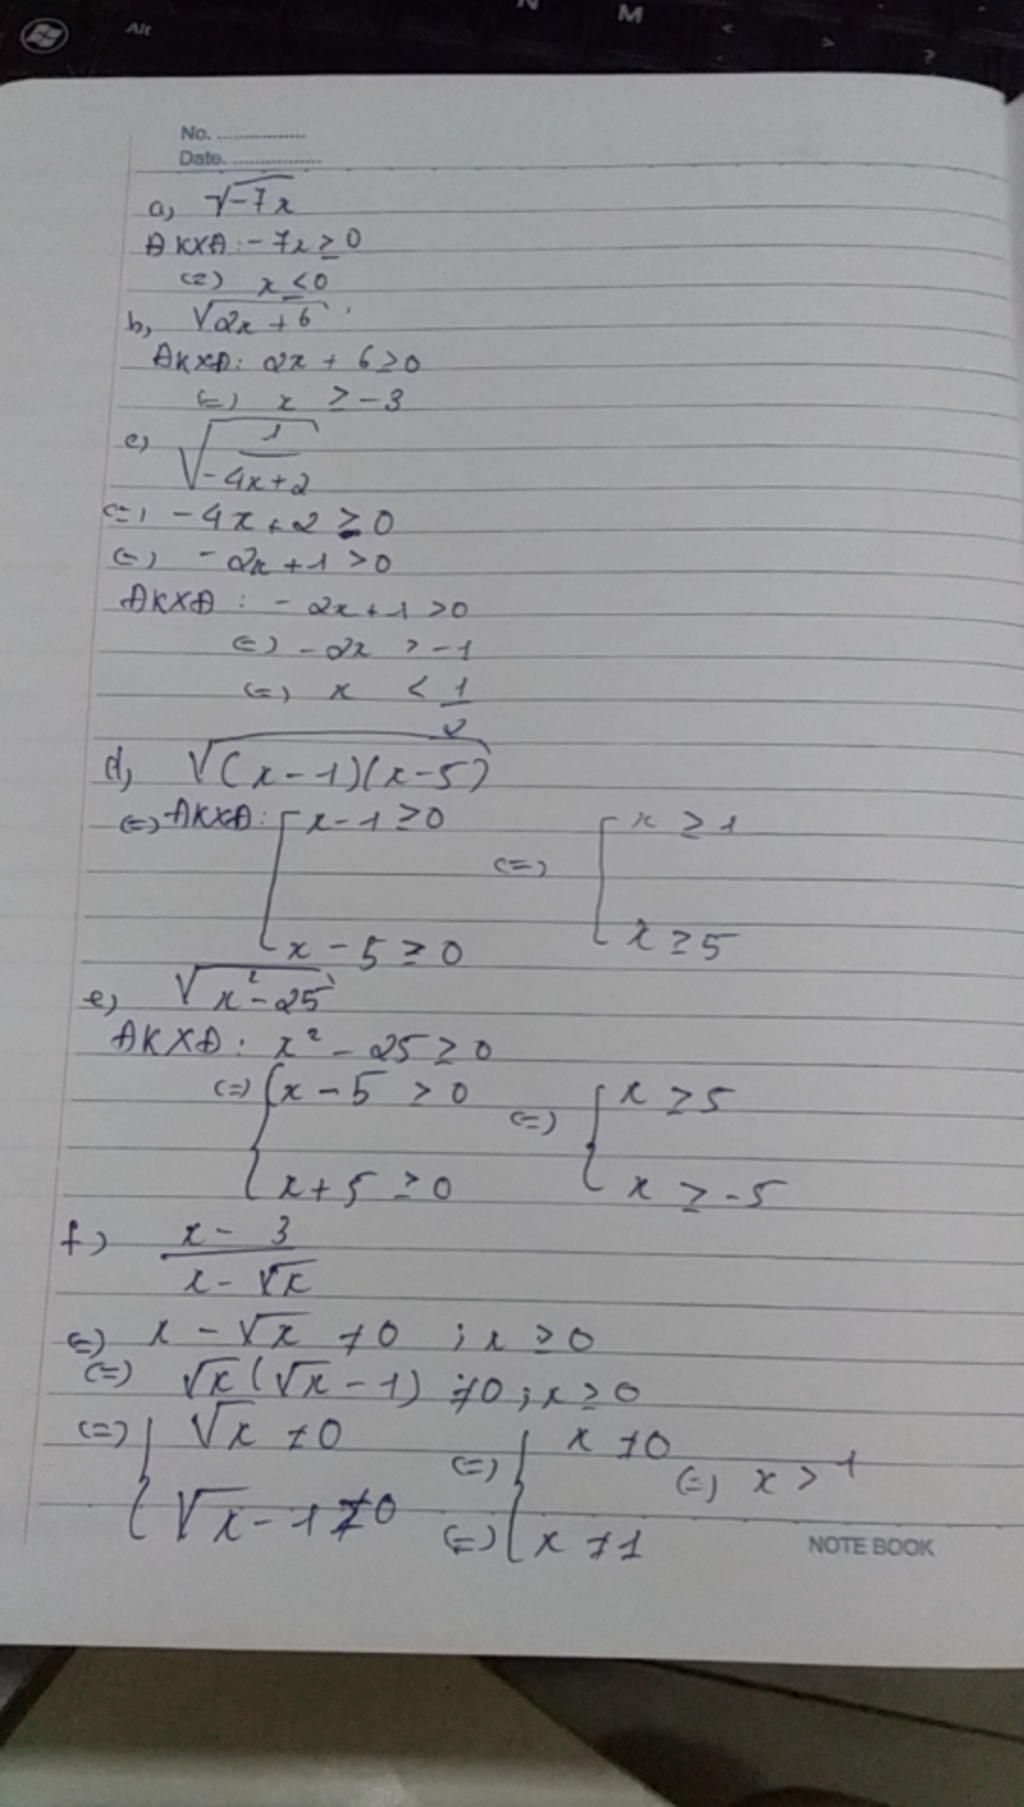 N M
Alt < > ?
No. ................
Date. ................
a, √-7x
ĐKXĐ: -7x ≥ 0
(=) x ≤ 0
b, √2x + 6
ĐKXĐ: 2x + 6 ≥ 0
(=) x ≥ -3
c) √1/-4x+2
(=) -4x + 2 ≥ 0
(=) -2x + 1 > 0
ĐKXĐ: -2x + 1 > 0
(=) -2x > -1
(=) x < 1/2
d, √(x-1)(x-5)
(=) ĐKXĐ: [ x - 1 ≥ 0 (=) [ x ≥ 1
x - 5 ≥ 0 x ≥ 5
e) √x² - 25
ĐKXĐ: x² - 25 ≥ 0
(=) { x - 5 ≥ 0 (=) { x ≥ 5
x + 5 ≥ 0 x ≥ -5
f) x - 3 / x - √x
(=) x - √x ≠ 0 ; x ≥ 0
(=) √x (√x - 1) ≠ 0 ; x ≥ 0
(=) { √x ≠ 0 (=) { x ≠ 0 (=) x > 1
√x - 1 ≠ 0 (=) x ≠ 1
NOTE BOOK